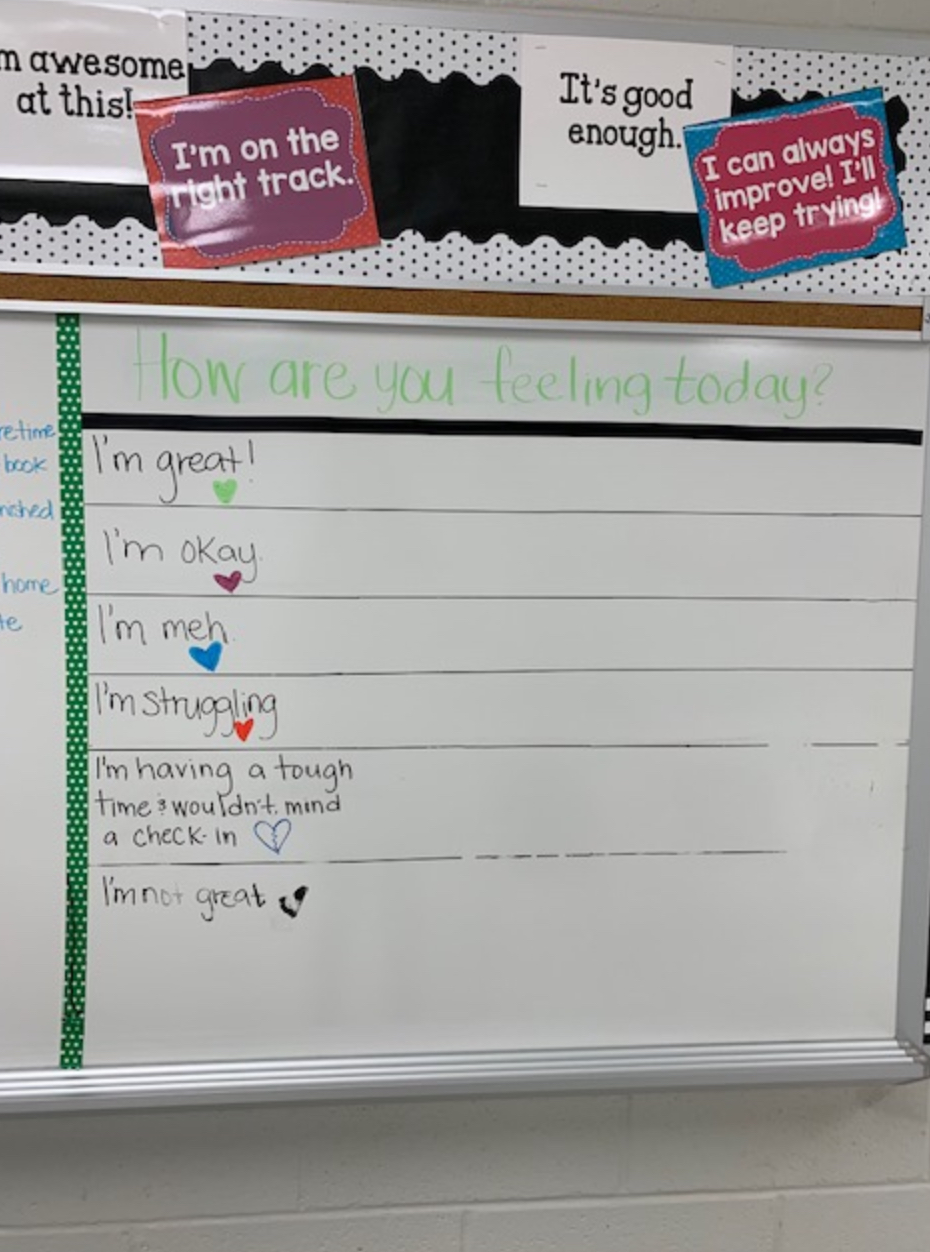 m awesome
at this!
I'm on the
right track.
It's good
enough.
I can always
improve! I'll
keep trying!
How are you feeling today?
retime
book
nished
home
te
I'm great!
I'm okay.
I'm meh.
I'm struggling
I'm having a tough
time & wouldn't mind
a check-in
I'm not great